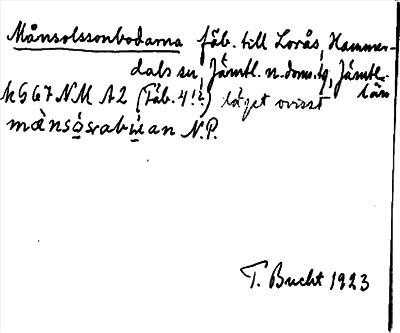 Månsolssonbodarna fäb. till Lorås, Hammer-
dals sn, Jämtl. n. doms.g, Jämtl.
län
k G 67 N.M A2 (Fäb. 4!?) läget ovisst
N.P.
T. Bucht 1923